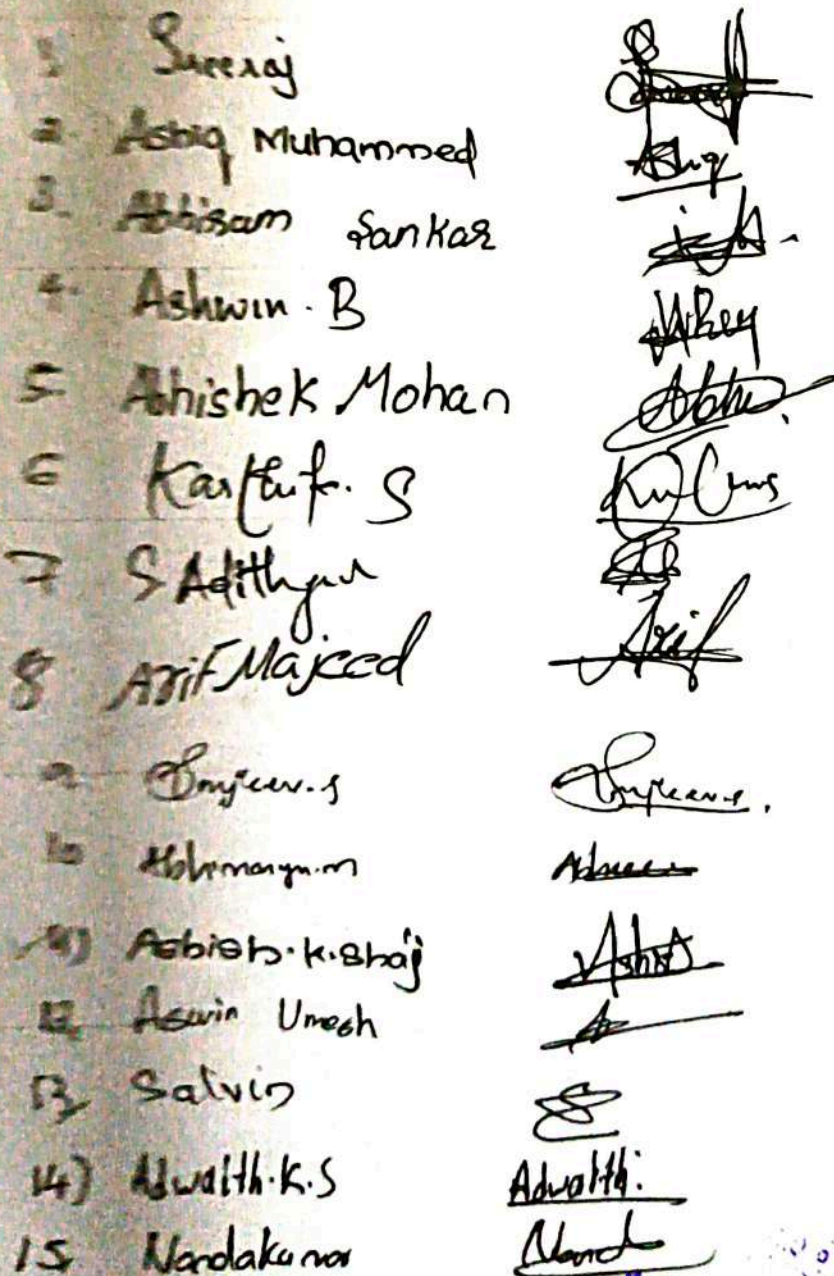 1 Sreeraj
2. Ashiq Muhammed Ashiq
3. Abhiram Sankar
4. Ashwin. B
5 Abhishek Mohan Abhi
6 Karthik. S
7 S Adithyan
8 Arif Majeed Arif
9 Sanjeev.s Sanjeev.s.
10 Abhimanyu.m
11) Ashish.k.shaj Ashish
12 Aswin Umesh
13, Salvin
14) Adwaith.K.S Adwaith.
15 Nandakumar Nand